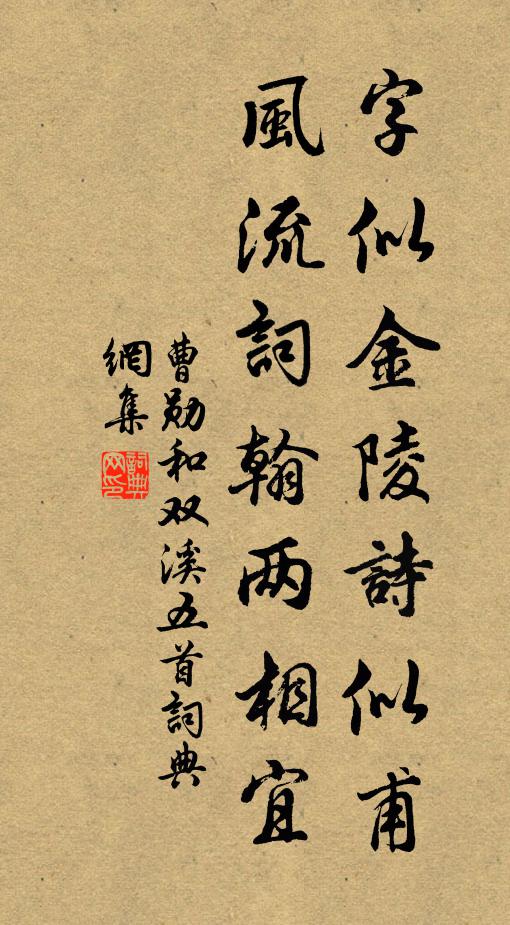 字似金陵詩似甫
風流詞翰两相宜
曹勛和双溪五首詞典
網集
詞典网印